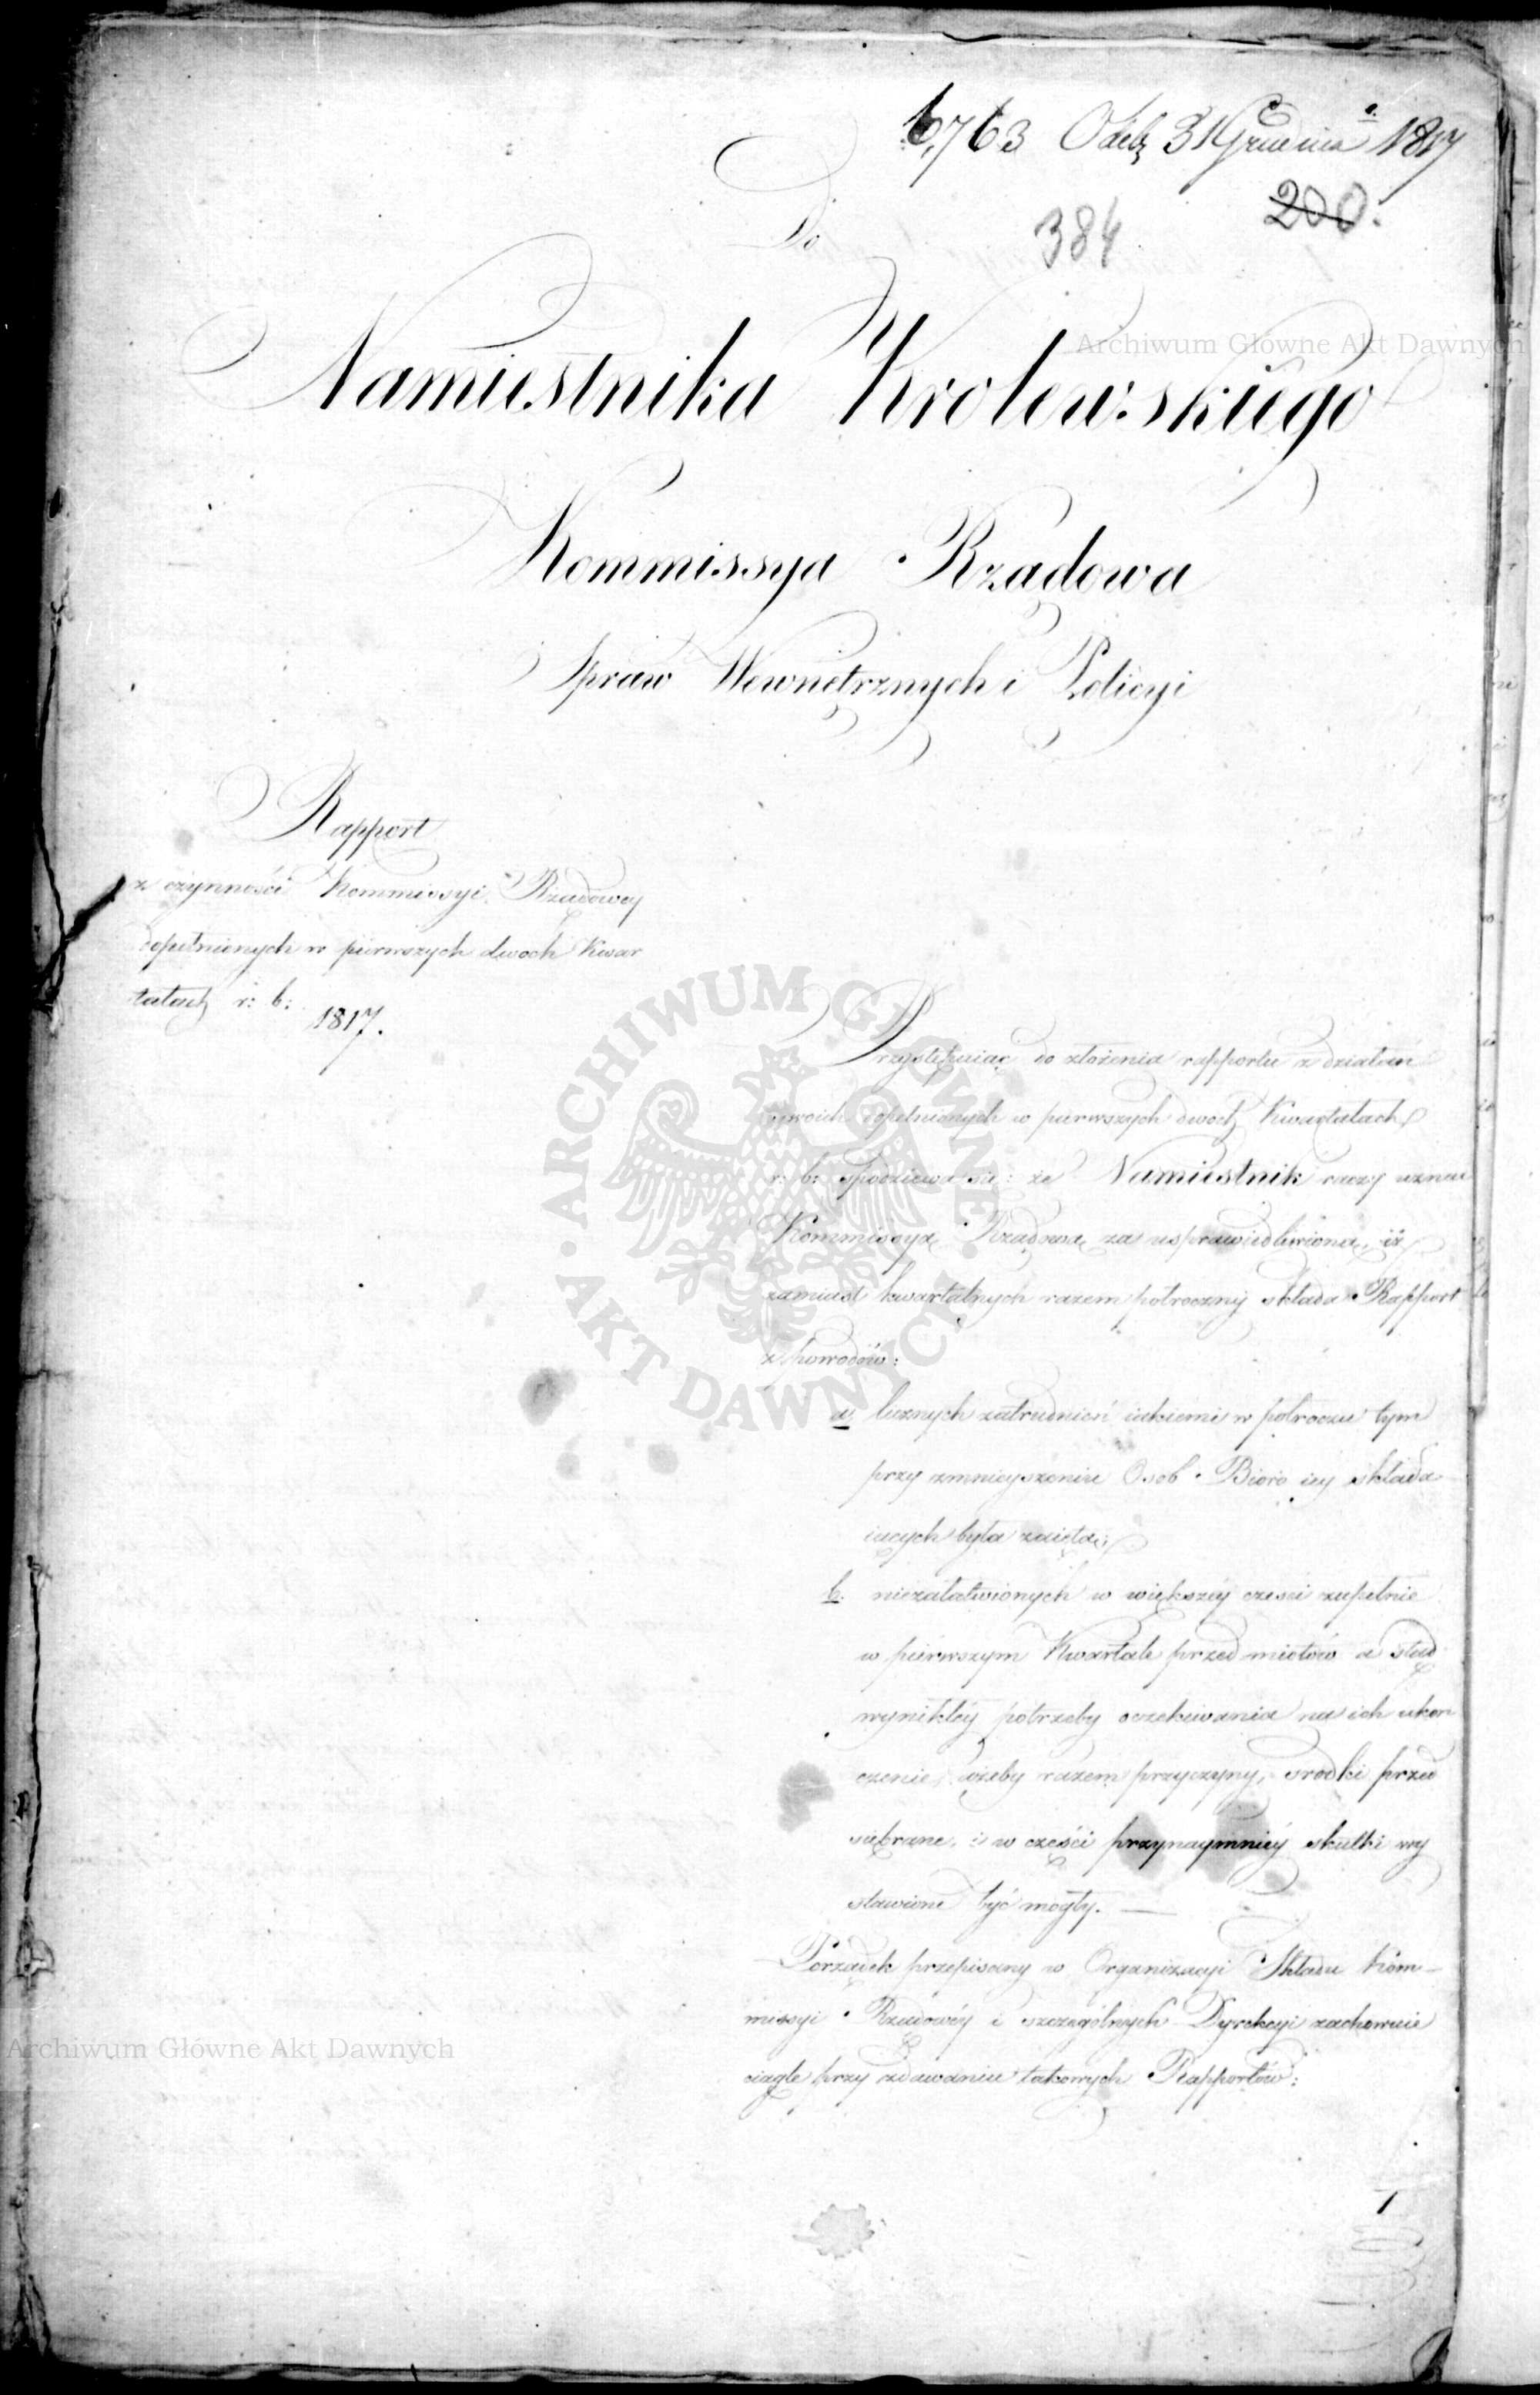 6,763 Odeb 31 Grudnia 1817
200.
384
Do
Namiestnika Krolewskiego
Kommissya Rządowa
Spraw Wewnętrznych i Policyi
Rapport
z czynności Kommissyi Rządowey
dopełnionych w pierwszych dwoch Kwar
tałach r: b:
1817.
Przystępuiąc do złożenia rapportu z działań
swoich dopełnionych w pierwszych dwoch Kwartałach
r: b: spodziewa się: że Namiestnik raczy uznać
Kommissyą Rządową za usprawiedliwioną, iż
zamiast kwartalnych razem połroczny składa Rapport
z powodów:
a licznych zatrudnień iakiemi w połroczu tym
przy zmnieyszeniu Osob Bioro iey składa
iących była zaięta;
b. niezałatwionych w większéy części zupełnie
w piérwszym Kwartale przedmiotów a stąd
wynikłéy potrzeby oczekiwania na ich ukoń
czenie, ażeby razem przyczyny, srodki przed
sięwzięte, i w części przynaymniéy skutki wy
stawione być mogły. —
Porządek przepisany w Organizacyi Składu Kom-
missyi Rządowéy i szczególnych Dyrekcyi zachowuie
ciągle przy zdawaniu takowych Rapportów:
1
Archiwum Główne Akt Dawnych
ARCHIWUM GŁÓWNE
AKT DAWNYCH
Archiwum Główne Akt Dawnych